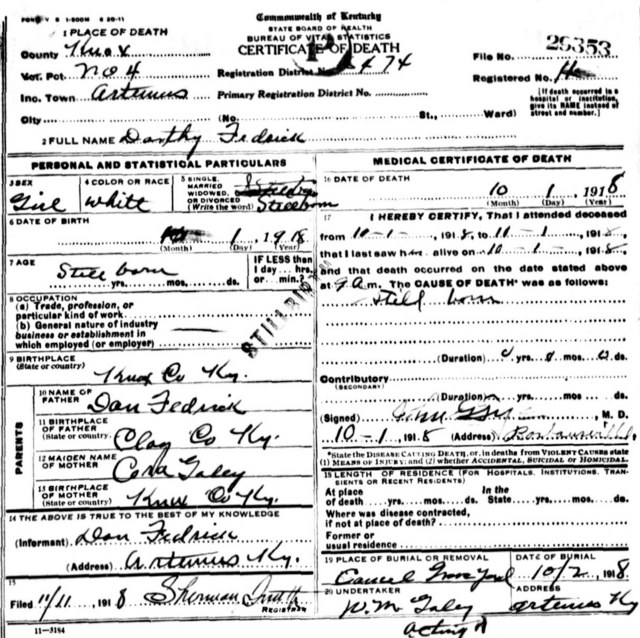 FORM V S 1-500M 6 20-11
Commonwealth of Kentucky
STATE BOARD OF HEALTH
BUREAU OF VITAL STATISTICS
CERTIFICATE OF DEATH
1 PLACE OF DEATH
County Knox
Vot. Pct No 4
Inc. Town Artemus
City (No. St., Ward)
Registration District No. 474
Primary Registration District No.
File No. 29353
Registered No.
[If death occurred in a hospital or institution, give its NAME instead of street and number.]
2 FULL NAME Dorthy Fedrick
PERSONAL AND STATISTICAL PARTICULARS
3 SEX
Girl
4 COLOR OR RACE
Whitt
5 SINGLE,
MARRIED
WIDOWED,
OR DIVORCED
(Write the word)
Steelborn
6 DATE OF BIRTH
1 1918
(Month) (Day) (Year)
7 AGE
Still born
yrs. mos. ds.
IF LESS than
1 day ... hrs.
or ... min.?
STILLBIRTH
8 OCCUPATION
(a) Trade, profession, or
particular kind of work
(b) General nature of industry
business or establishment in
which employed (or employer)
9 BIRTHPLACE
(State or country)
Knox Co Ky.
PARENTS
10 NAME OF
FATHER
Dan Fedrick
11 BIRTHPLACE
OF FATHER
(State or country)
Clay Co Ky.
12 MAIDEN NAME
OF MOTHER
Cora Galey
13 BIRTHPLACE
OF MOTHER
(State or country)
Knox Co Ky.
14 THE ABOVE IS TRUE TO THE BEST OF MY KNOWLEDGE
(Informant) Dan Fedrick
(Address) Artemus Ky.
15
Filed 11/11, 1918 Sherman
REGISTRAR
11-3184
MEDICAL CERTIFICATE OF DEATH
16 DATE OF DEATH
10 1, 1918
(Month) (Day) (Year)
17 I HEREBY CERTIFY, That I attended deceased
from 10-1-, 1918, to 11-1-, 1918,
that I last saw h alive on 10-1-, 1918,
and that death occurred on the date stated above
at 9 am. The CAUSE OF DEATH* was as follows:
Still born
(Duration) 0 yrs. 0 mos. 0 ds.
Contributory
(Secondary)
(Duration) yrs. mos. ds.
(Signed) M. D.
10-1, 1918 (Address)
*State the DISEASE CAUSING DEATH, or, in deaths from VIOLENT CAUSES state
(1) MEANS OF INJURY; and (2) whether ACCIDENTAL, SUICIDAL or HOMICIDAL.
18 LENGTH OF RESIDENCE (FOR HOSPITALS, INSTITUTIONS, TRANSIENTS OR RECENT RESIDENTS)
At place of death yrs. mos. ds. In the State, yrs. mos. ds.
Where was disease contracted,
if not at place of death?
Former or
usual residence
19 PLACE OF BURIAL OR REMOVAL
DATE OF BURIAL
10/2, 1918
20 UNDERTAKER
W. M Galey
ADDRESS
Artemus Ky
Acting